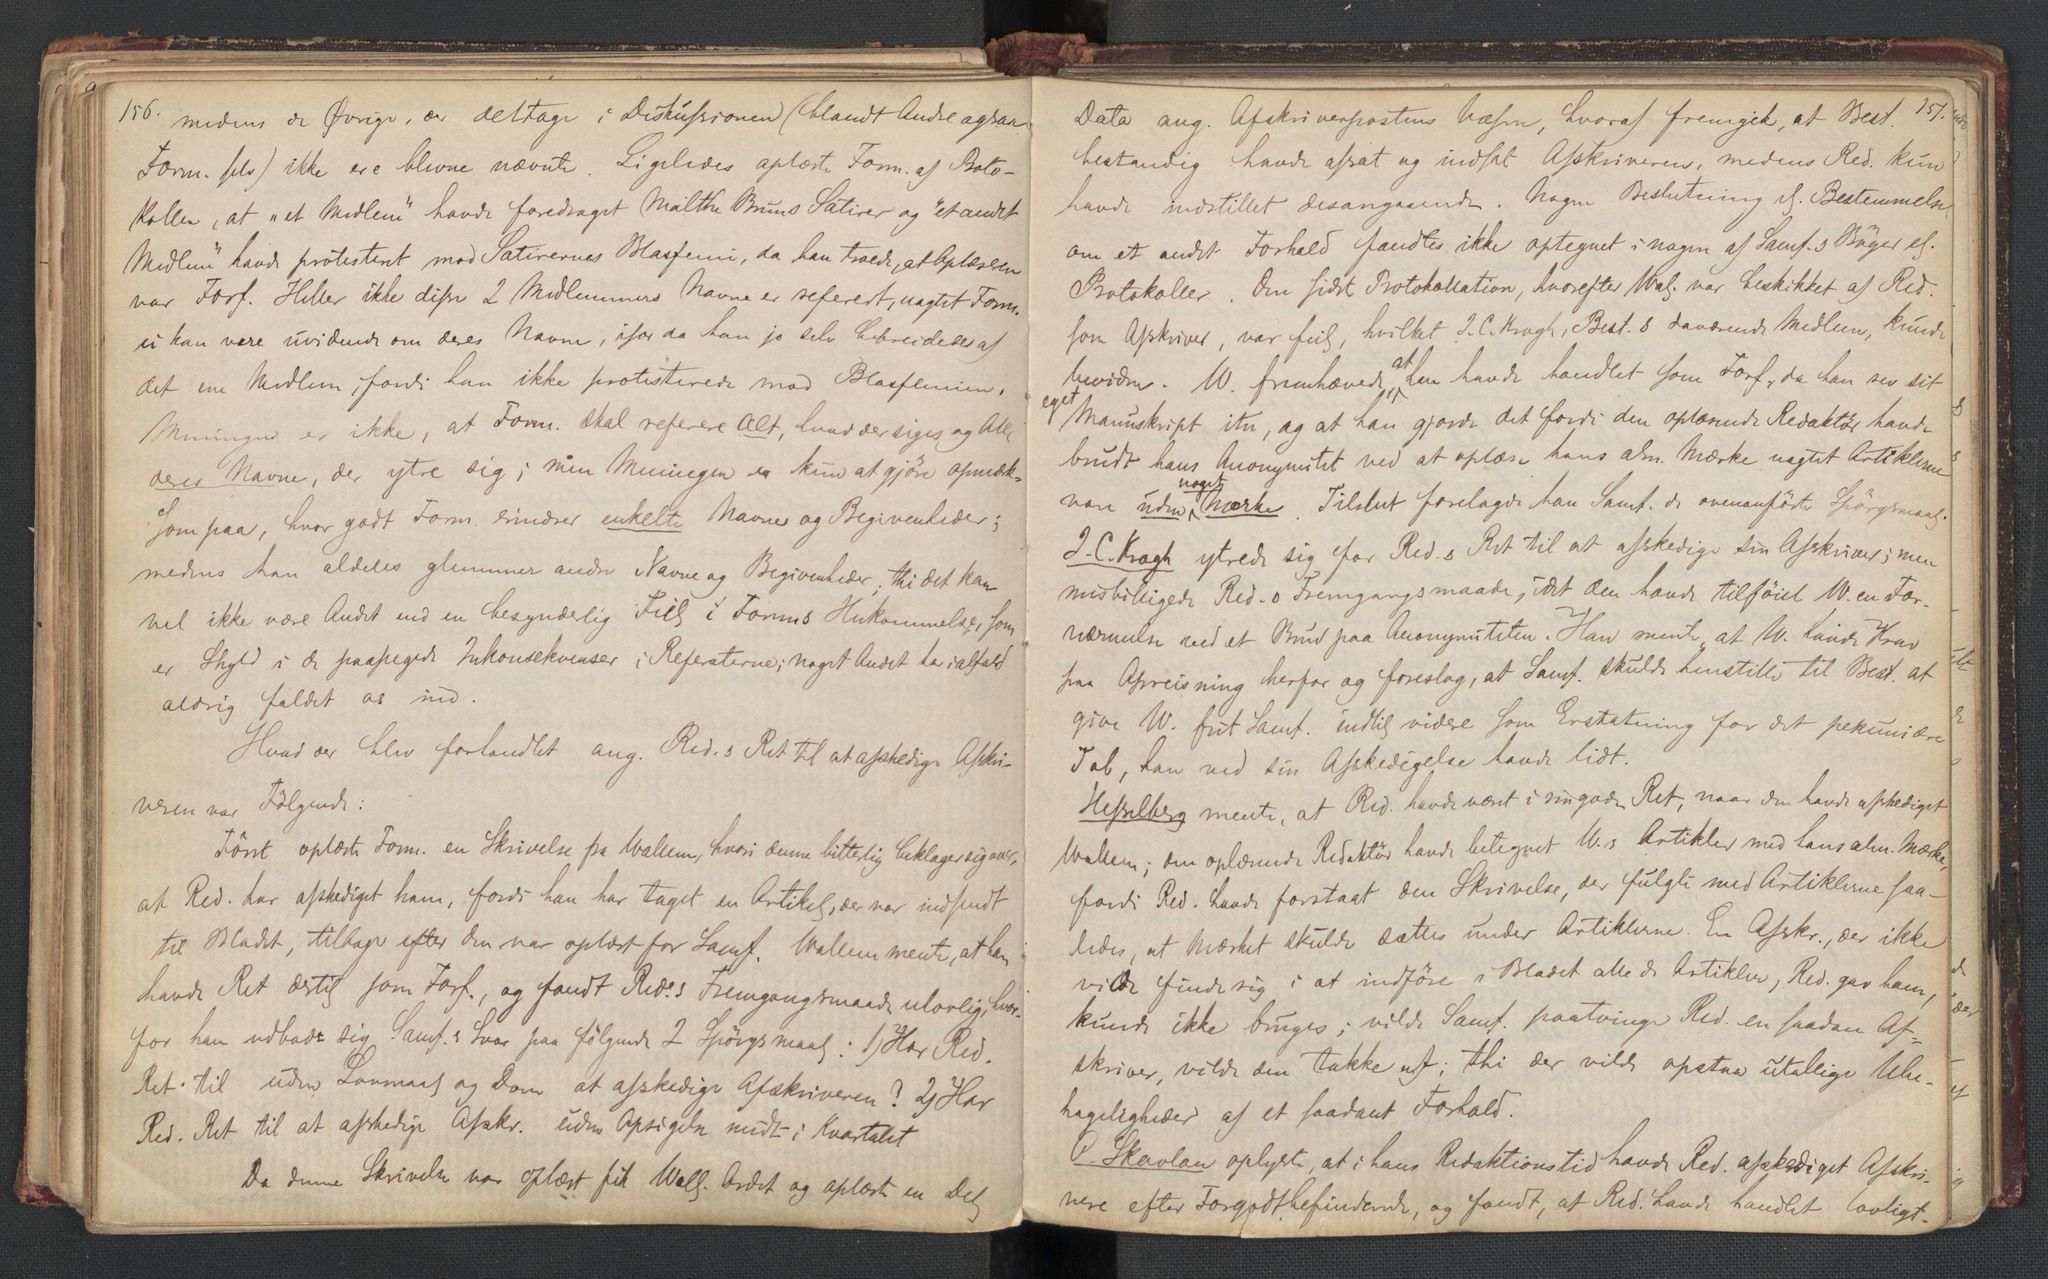 156.
medens de Øvrige, der deltage i Diskussionen (blandt Andre ogsaa
Form. selv) ikke ere blevne nævnte. Ligeledes oplæste Form. af Proto-
kollen, at "et Medlem" havde foredraget Malthe Bruns Satirer og "et andet
Medlem" havde protesteret mod Satirernes Blasfemi, da han troede, at Oplæseren
var Forf. Heller ikke disse 2 Medlemmers Navne er refereret, uagtet Form.
ei kan være uvidende om deres Navne, især da han jo selv bebreidedes af
det ene Medlem, fordi han ikke protesterede mod Blasfemien.
Meningen er ikke, at Form. skal referere Alt, hvad der siges og Alle
deres Navne, der ytre sig; men Meningen er kun at gjöre opmærk-
som paa, hvor godt Form. erindrer enkelte Navne og Begivenheder;
medens han aldeles glemmer andre Navne og Begivenheder; thi det kan
vel ikke være Andet end en besynderlig Feil i Forms Hukommelse, som
er Skyld i de paapegede Inkonsekvenser i Referaterne; noget Andet har ialfald
aldrig faldet os ind.
Hvad der blev forhandlet ang. Red.s Ret til at afskedige Afskri-
veren var Følgende:
Först oplæste Form. en Skrivelse fra Wallem, hvori denne bitterlig beklager sig over,
at Red. har afskediget ham, fordi han har taget en Artikel, der var indsendt
til Bladet, tilbage efter den var oplæst for Samf. Wallem mente, at han
havde Ret dertil som Forf., og fandt Red.s Fremgangsmaade ulovlig, hvor-
for han udbad sig Samf.s Svar paa fölgende 2 Spörgsmaal: 1) Har Red.
Ret til uden Lovmaal og Dom at afskedige Afskriveren? 2) Har
Red. Ret til at afskedige Afskr. uden Opsigelse midt i Kvartalet
Da denne Skrivelse var oplæst fik Wall. Ordet og oplæste en Del
157.
Data ang. Afskriverpostens Væsen, hvoraf fremgik, at Best.
bestandig havde afsat og indsat Afskriveren, medens Red. kun
havde indstillet desangaaende. Nogen Beslutning el. Bestemmelse
om et andet Forhold fandtes ikke optegnet i nogen af Samf.s Böger el.
Protokoller. Den sidste Protokollation, hvorefter Wal. var beskikket af Red.
som Afskriver, var feil, hvilket J. C. Kragh, Best.s daværende Medlem, kunde
bevidne. W. fremhævede, at han havde handlet som Forf., da han rev sit
eget
Manuskript itu, og at han gjorde det fordi den oplæsende Redaktör havde
brudt hans Anonymitet ved at oplæse hans alm. Mærke uagtet Artiklerne
vare uden noget Mærke. Tilslut forelagde han Samf. de ovenanförte Spörgsmaal.
J. C. Kragh ytrede sig for Red.s Ret til at afskedige sin Afskriver; men
misbilligede Red.s Fremgangsmaade, idet den havde tilföiet W. en For-
nærmelse ved et Brud paa Anonymiteten. Han mente, at W. havde Krav
paa Opreisning herfor og foreslog, at Samf. skulde henstille til Best. at
give W. frit Samf. indtil videre som Erstatning for det pekuniære
Tab, han ved sin Afskedigelse havde lidt.
Hesselberg mente, at Red. havde været i sin gode Ret, naar den havde afskediget
Wallem; den oplæsende Redaktör havde betegnet W.s Artikler med hans alm. Mærke,
fordi Red. havde forstaat den Skrivelse, der fulgte med Artiklerne saa-
ledes, at Mærket skulde sættes under Artiklerne. En Afskr., der ikke
vilde finde sig i at indföre i Bladet alle de Artikler, Red. gav ham,
kunde ikke bruges; vilde Samf. paatvinge Red. en saadan Af-
skriver, vilde den takke af; thi der vilde opstaa utallige Ube-
hageligheder af et saadant Forhold.
O. Skavlan oplyste, at i hans Redaktionstid havde Red. afskediget Afskri-
vere efter Forgodtbefindende, og fandt, at Red. havde handlet lovligt.